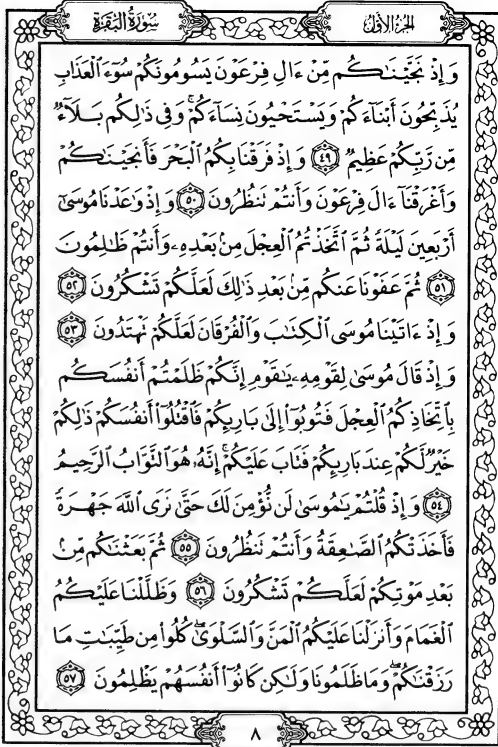 الجزء الأول
سورة البقرة
وَإِذْ نَجَّيْنَـٰكُم مِّنْ ءَالِ فِرْعَوْنَ يَسُومُونَكُمْ سُوٓءَ ٱلْعَذَابِ
يُذَبِّحُونَ أَبْنَآءَكُمْ وَيَسْتَحْيُونَ نِسَآءَكُمْ ۚ وَفِى ذَٰلِكُم بَلَآءٌ
مِّن رَّبِّكُمْ عَظِيمٌ ٤٩ وَإِذْ فَرَقْنَا بِكُمُ ٱلْبَحْرَ فَأَنجَيْنَـٰكُمْ
وَأَغْرَقْنَآ ءَالَ فِرْعَوْنَ وَأَنتُمْ تَنظُرُونَ ٥٠ وَإِذْ وَٰعَدْنَا مُوسَىٰٓ
أَرْبَعِينَ لَيْلَةً ثُمَّ ٱتَّخَذْتُمُ ٱلْعِجْلَ مِنۢ بَعْدِهِۦ وَأَنتُمْ ظَـٰلِمُونَ
٥١ ثُمَّ عَفَوْنَا عَنكُم مِّنۢ بَعْدِ ذَٰلِكَ لَعَلَّكُمْ تَشْكُرُونَ ٥٢
وَإِذْ ءَاتَيْنَا مُوسَى ٱلْكِتَـٰبَ وَٱلْفُرْقَانَ لَعَلَّكُمْ تَهْتَدُونَ ٥٣
وَإِذْ قَالَ مُوسَىٰ لِقَوْمِهِۦ يَـٰقَوْمِ إِنَّكُمْ ظَلَمْتُمْ أَنفُسَكُم
بِٱتِّخَاذِكُمُ ٱلْعِجْلَ فَتُوبُوٓا۟ إِلَىٰ بَارِئِكُمْ فَٱقْتُلُوٓا۟ أَنفُسَكُمْ ذَٰلِكُمْ
خَيْرٌ لَّكُمْ عِندَ بَارِئِكُمْ فَتَابَ عَلَيْكُمْ ۚ إِنَّهُۥ هُوَ ٱلتَّوَّابُ ٱلرَّحِيمُ
٥٤ وَإِذْ قُلْتُمْ يَـٰمُوسَىٰ لَن نُّؤْمِنَ لَكَ حَتَّىٰ نَرَى ٱللَّهَ جَهْرَةً
فَأَخَذَتْكُمُ ٱلصَّـٰعِقَةُ وَأَنتُمْ تَنظُرُونَ ٥٥ ثُمَّ بَعَثْنَـٰكُم مِّنۢ
بَعْدِ مَوْتِكُمْ لَعَلَّكُمْ تَشْكُرُونَ ٥٦ وَظَلَّلْنَا عَلَيْكُمُ
ٱلْغَمَامَ وَأَنزَلْنَا عَلَيْكُمُ ٱلْمَنَّ وَٱلسَّلْوَىٰ ۖ كُلُوا۟ مِن طَيِّبَـٰتِ مَا
رَزَقْنَـٰكُمْ ۖ وَمَا ظَلَمُونَا وَلَـٰكِن كَانُوٓا۟ أَنفُسَهُمْ يَظْلِمُونَ ٥٧
٨